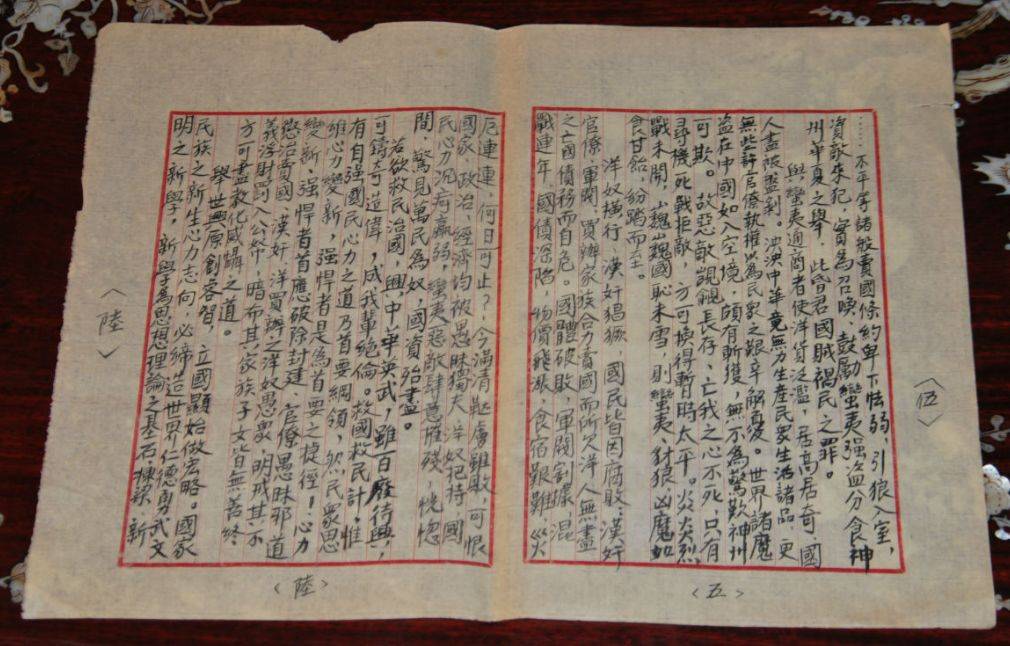 〈伍〉
……不平等諸般賣國條約卑下怯弱，引狼入室，
資敵失犯，實為召喚、鼓勵蠻夷强盜分食神
州華夏之舉，此皆君國賊禍民之罪。
與蠻夷通商者使洋貨泛濫，居高居奇，國
人盡被盤剝。泱泱中華竟無力生產民衆生活諸品，更
無些許官僚執権以為民衆之艱辛解憂。世界諸魔
盜在中國如入空境，頗有斬獲，無不為驚歎神州
可欺。故惡敵覬覦長存，亡我之心不死，只有
尋機死戰拒敵，方可換得暫時太平。炎炎烈
戰未開，巍巍國恥未雪，則蠻夷、豺狼、凶魔如
食甘飴，紛踏而至。
洋奴橫行，漢奸猖獗，國民皆因腐敗、漢奸
官僚、軍閥、買辦家族合力賣國而所欠洋人無盡
之亡國債務而自危。國體破敗，軍閥割據，混
戰連年，國債深陷，物價飛漲，食宿艱難，災
〈五〉
厄連連，何日可止？今滿清韃虜雖敗，可恨
國家、政治、經濟均被愚昧獨夫、洋奴把持，國
民心力沉疴羸弱，蠻夷惡敵肆意摧殘，恍惚
間，驚見萬民為奴，國資殆盡。
若欲救民治國，興中華英武，雖百廢待興，
可鑄奇迹偉，咸我輩絕倫。救國救民計，惟
有自强國民心力之道乃首要綱領，然民衆思
維心力變新，强悍者是為首要之捷徑！心力
變新、强悍者首應破除封建、官僚愚昧邪道
懲治賣國、漢奸、洋買辦之洋奴愚衆，明戒其不
義浮財罰入公帑，暗布其家族子女皆無善終
方可盡教化威懾之道。
舉世興原創睿智，立國顯始做宏略。國家
民族之新生心力志向，必締造世界仁德勇武文
明之新學。新學為思想理論之基石棟梁，新
〈陸〉
〈陸〉